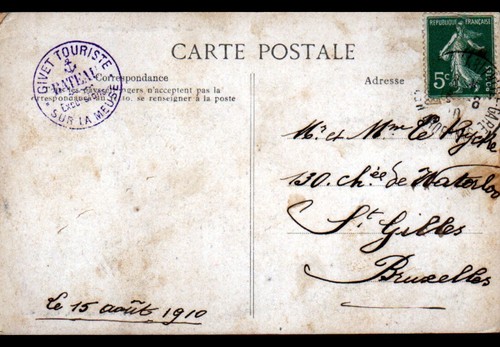 CARTE POSTALE
GIVET TOURISTE
BATEAU
SUR LA MEUSE
Correspondance
pays étrangers n'acceptent pas la
correspondance au se renseigner à la poste
Adresse
RÉPUBLIQUE FRANÇAISE
POSTES
5c
Mr et Mme
130. Chée de Waterloo
St Gilles
Bruxelles
le 15 août 1910